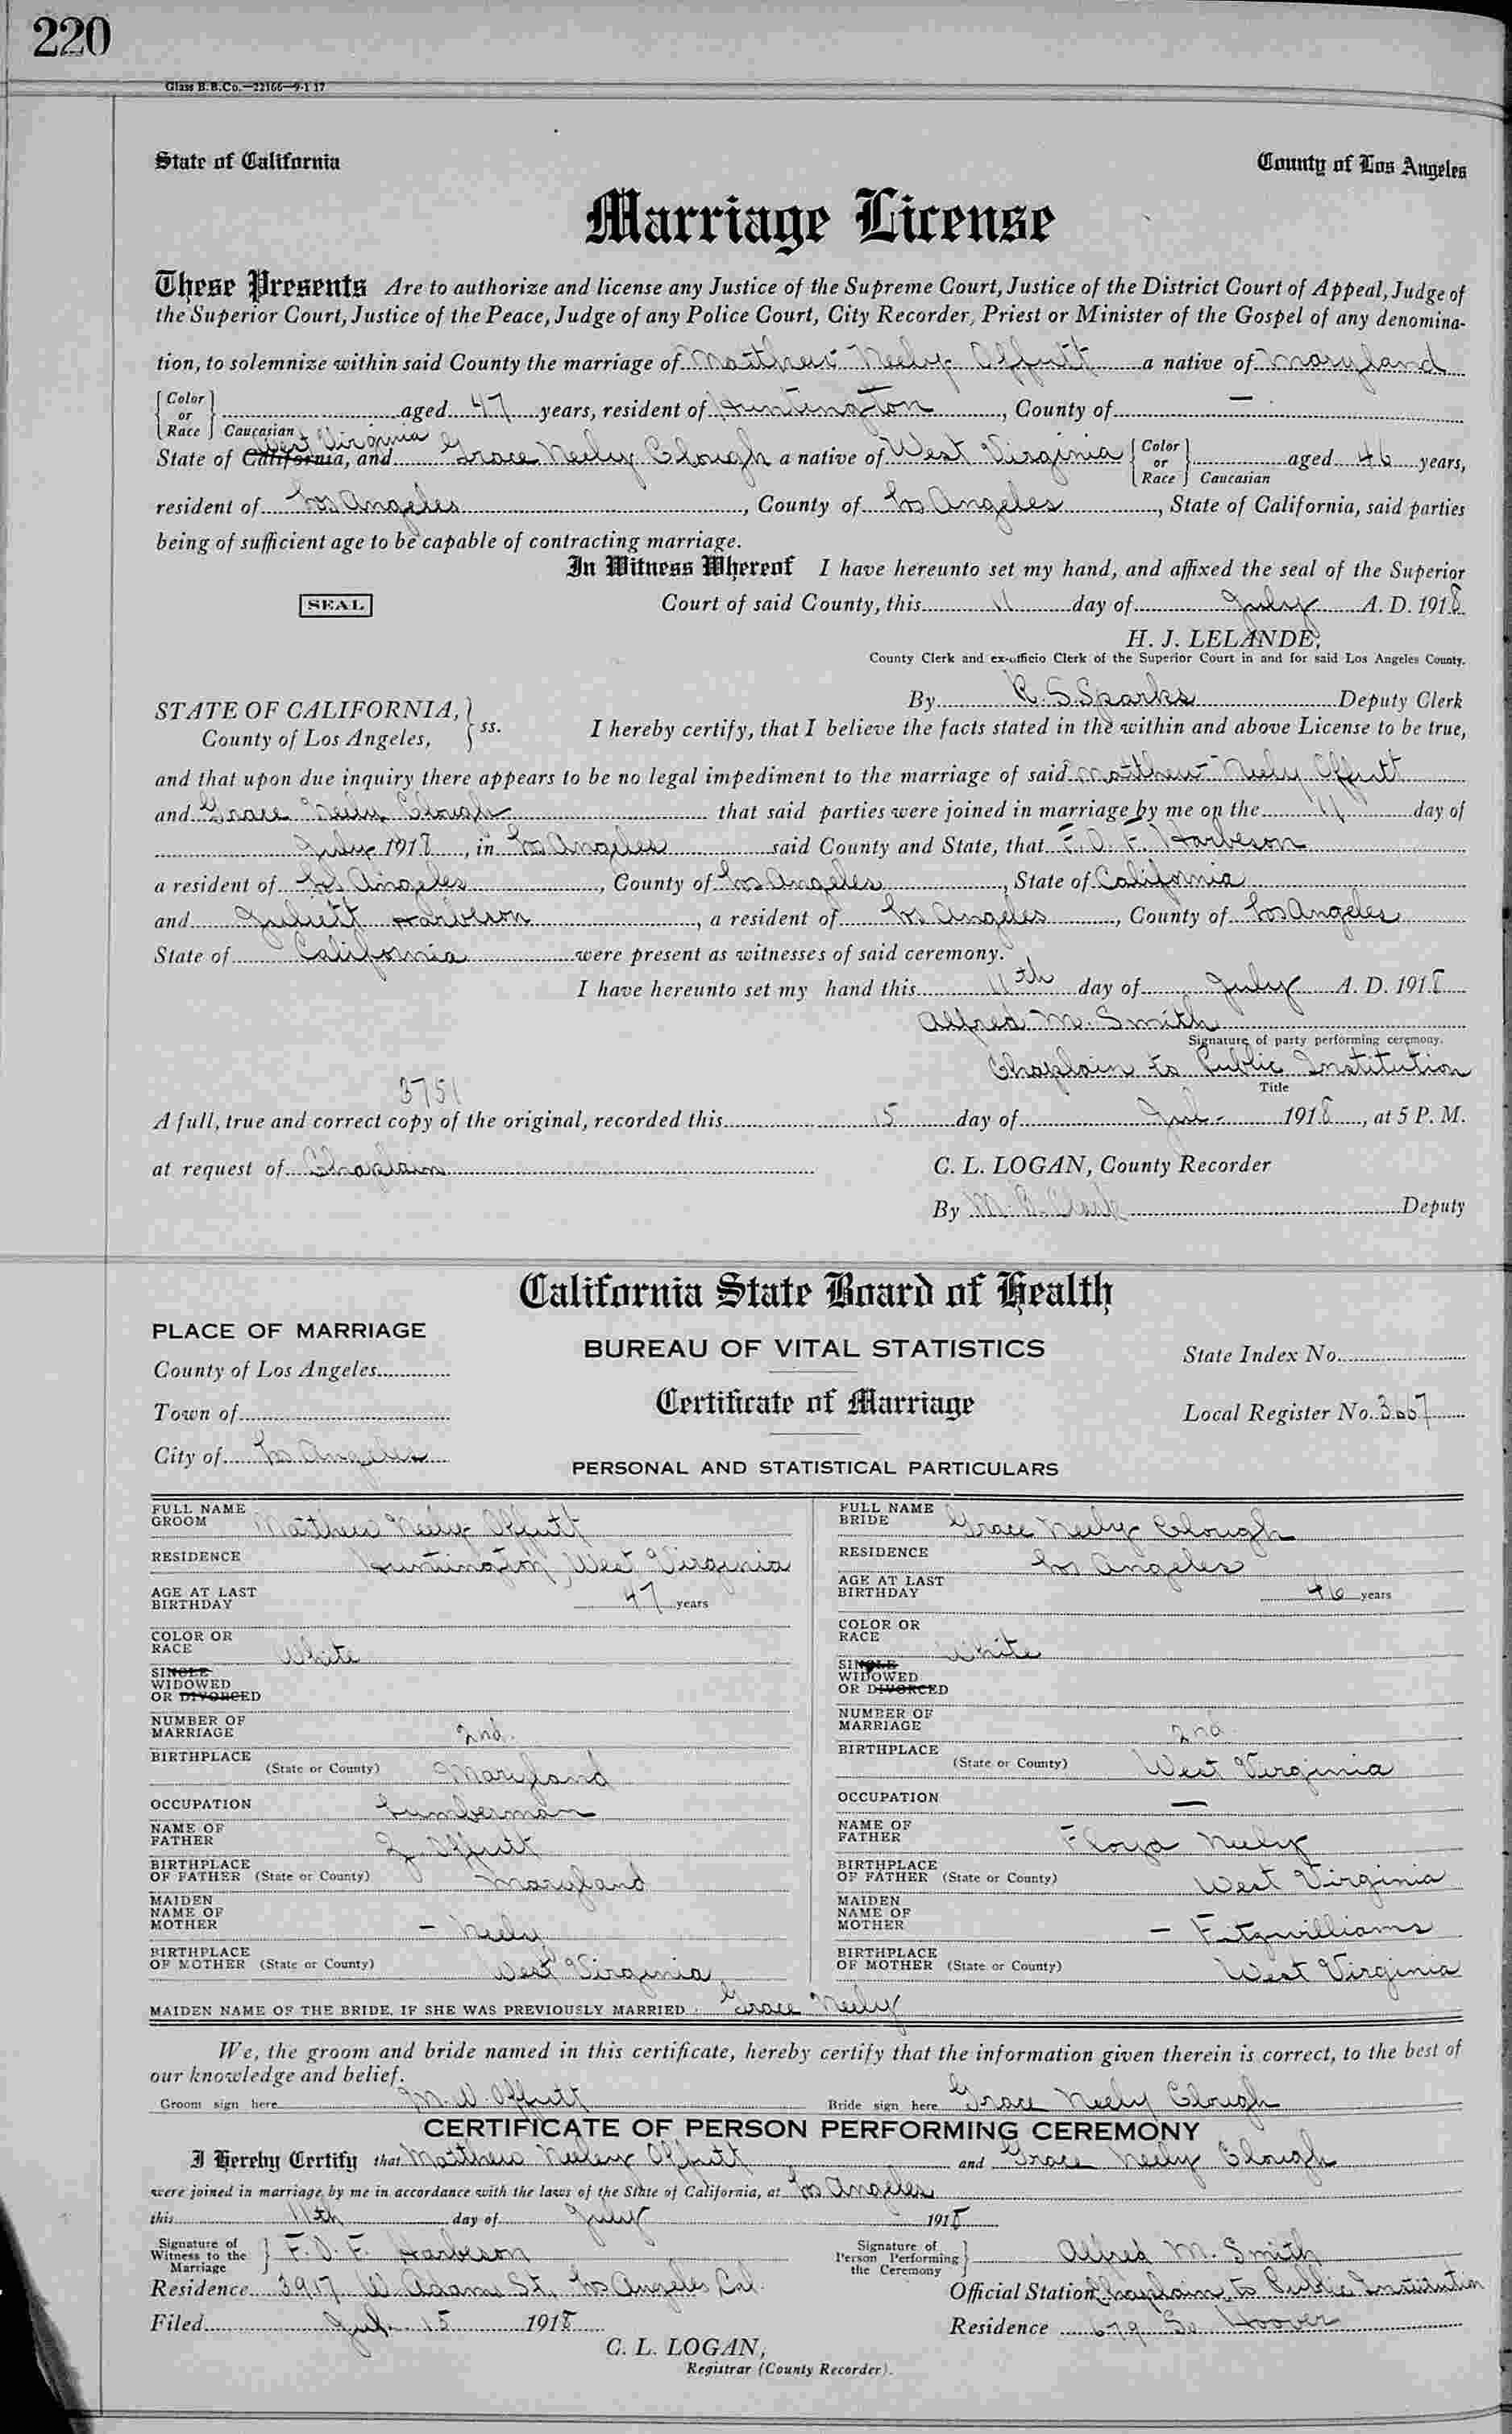 220
Glass B.B.Co.—22166—9-1 17
State of California County of Los Angeles
Marriage License
These Presents Are to authorize and license any Justice of the Supreme Court, Justice of the District Court of Appeal, Judge of
the Superior Court, Justice of the Peace, Judge of any Police Court, City Recorder, Priest or Minister of the Gospel of any denomina-
tion, to solemnize within said County the marriage of Matthew Neely Offutt a native of Maryland
Color or Race Caucasian aged 47 years, resident of Huntington, County of —
West Virginia
State of California, and Grace Neely Clough a native of West Virginia Color or Race Caucasian aged 46 years,
resident of Los Angeles, County of Los Angeles, State of California, said parties
being of sufficient age to be capable of contracting marriage.
In Witness Whereof I have hereunto set my hand, and affixed the seal of the Superior
SEAL Court of said County, this 11 day of July A. D. 1918
H. J. LELANDE,
County Clerk and ex-officio Clerk of the Superior Court in and for said Los Angeles County.
By R. S. Sparks Deputy Clerk
STATE OF CALIFORNIA,
County of Los Angeles, ss. I hereby certify, that I believe the facts stated in the within and above License to be true,
and that upon due inquiry there appears to be no legal impediment to the marriage of said Matthew Neely Offutt
and Grace Neely Clough that said parties were joined in marriage by me on the 11 day of
July 1918, in Los Angeles said County and State, that F. O. F. Harbeson
a resident of Los Angeles, County of Los Angeles, State of California
and Juliett Harbeson, a resident of Los Angeles, County of Los Angeles
State of California were present as witnesses of said ceremony.
I have hereunto set my hand this 11th day of July A. D. 1918
Alfred M. Smith
Signature of party performing ceremony.
Chaplain to Public Institution
Title
3751
A full, true and correct copy of the original, recorded this 15 day of Jul. 1918, at 5 P. M.
at request of Chaplain C. L. LOGAN, County Recorder
By M. B. Clark Deputy
California State Board of Health
PLACE OF MARRIAGE
BUREAU OF VITAL STATISTICS
County of Los Angeles State Index No.
Certificate of Marriage
Town of Local Register No. 3667
City of Los Angeles
PERSONAL AND STATISTICAL PARTICULARS
FULL NAME GROOM Matthew Neely Offutt FULL NAME BRIDE Grace Neely Clough
RESIDENCE Huntington, West Virginia RESIDENCE Los Angeles
AGE AT LAST BIRTHDAY 47 years AGE AT LAST BIRTHDAY 46 years
COLOR OR RACE White COLOR OR RACE White
SINGLE WIDOWED OR DIVORCED SINGLE WIDOWED OR DIVORCED
NUMBER OF MARRIAGE 2nd. NUMBER OF MARRIAGE 2nd.
BIRTHPLACE (State or County) Maryland BIRTHPLACE (State or County) West Virginia
OCCUPATION Lumberman OCCUPATION —
NAME OF FATHER Z. Offutt NAME OF FATHER Floyd Neely
BIRTHPLACE OF FATHER (State or County) Maryland BIRTHPLACE OF FATHER (State or County) West Virginia
MAIDEN NAME OF MOTHER — Neely MAIDEN NAME OF MOTHER — Fitzwilliams
BIRTHPLACE OF MOTHER (State or County) West Virginia BIRTHPLACE OF MOTHER (State or County) West Virginia
MAIDEN NAME OF THE BRIDE, IF SHE WAS PREVIOUSLY MARRIED Grace Neely
We, the groom and bride named in this certificate, hereby certify that the information given therein is correct, to the best of
our knowledge and belief.
Groom sign here M. W. Offutt Bride sign here Grace Neely Clough
CERTIFICATE OF PERSON PERFORMING CEREMONY
I Hereby Certify that Matthew Neeley Offutt and Grace Neely Clough
were joined in marriage by me in accordance with the laws of the State of California, at Los Angeles
this 11th day of July 1918
Signature of Witness to the Marriage F. O. F. Harbeson Signature of Person Performing the Ceremony Alfred M. Smith
Residence 3917 W. Adams St., Los Angeles Cal. Official Station Chaplain to Public Institution
Filed Jul. 15 1918 Residence 679 So Hoover
C. L. LOGAN,
Registrar (County Recorder).